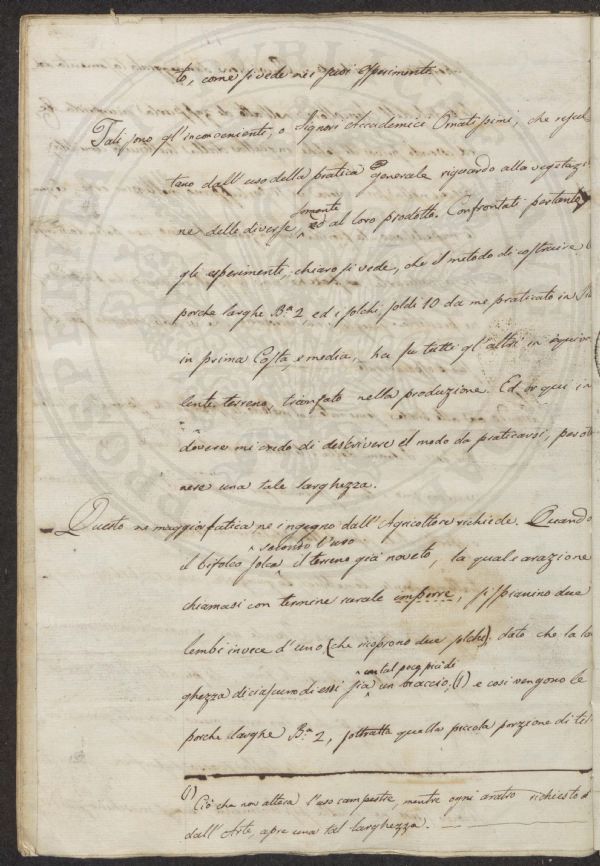 to, come si vede nei suoi esperimenti.
Tali sono gl'inconvenienti, o Signori Accademici Ornatissimi, che resul-
tano dall'uso della pratica generale riguardo alla vegetazi
ne delle diverse semente ed al loro prodotto. Confrontati pertanto
gli esperimenti, chiaro si vede, che il metodo di costruire
porche larghe B.ª 2, ed i solchi soldi 10 da me praticato in
in prima Costa, e media, ha su tutti gl'altri in equiva
lente terreno, trionfato nella produzione. Ed or qui in
dovere mi credo di descrivere el modo da praticarsi, per ott
nere una tale larghezza.
Questo ne maggior fatica ne ingegno dall'Agricoltore richiede. Quando
il bifolco secondo l'uso solca il terreno già noveto, la quale arazione
chiamasi con termine rurale imporre, si spianino due
lembi invece d'uno (che ricoprono due solchi) dato che la la
ghezza di ciascuno di essi sia un tal poco più di un braccio, (1) e così vengono le
porche larghe B.ª 2, sottratta quella piccola porzione di te
(1) Ciò che non altera l'uso campestre, mentre ogni aratro richiesto d
dall'Arte, apre una tal larghezza.